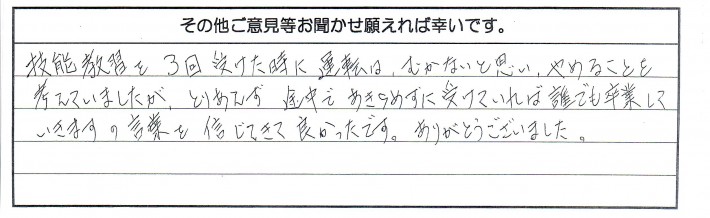 その他ご意見等お聞かせ願えれば幸いです。
技能教習を3回受けた時に運転は、むかないと思い、やめることを
考えていましたが、とりあえず途中であきらめずに受けていれば誰でも卒業して
いきますの言葉を信じてきて良かったです。ありがとうございました。